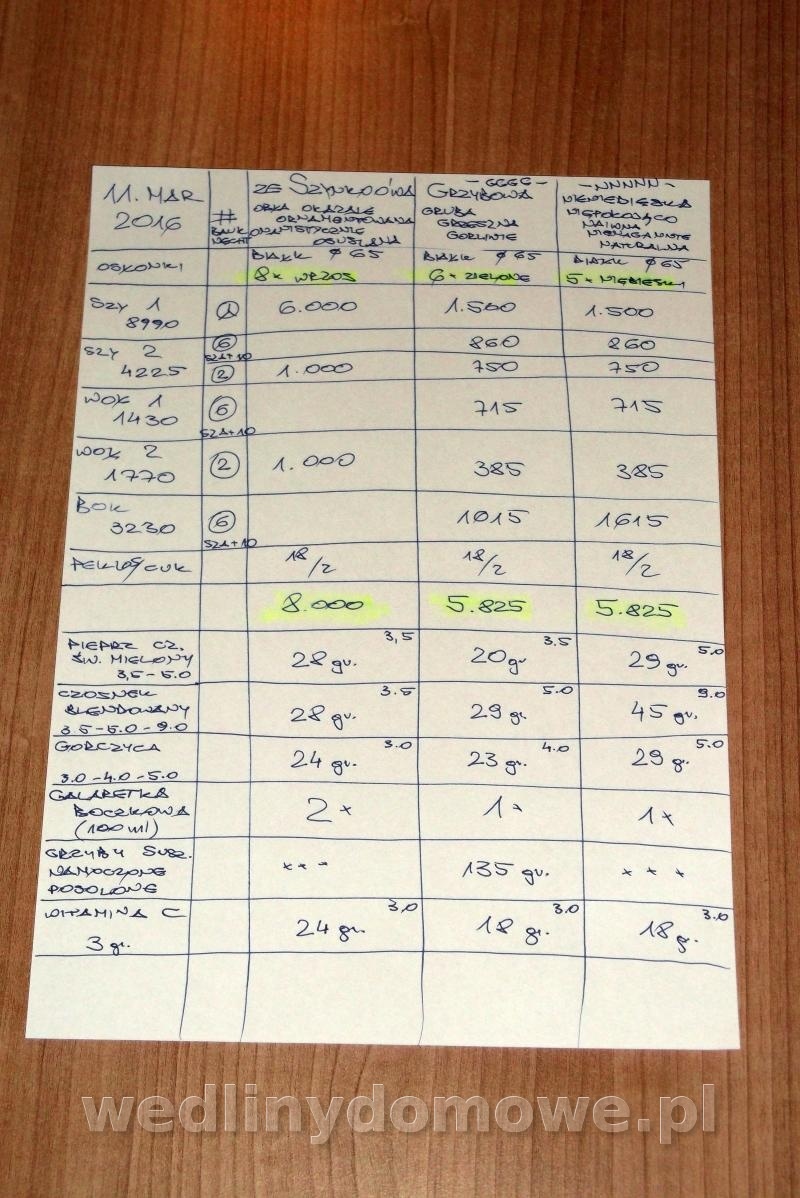 11. MAR
2016
#
ZE SZYNKOOWA
OBKA OKAZALE
ORNAMENTOWANA
ONANISTYCZNIE
OSUSZANA
- GGGG -
GRZYBOWA
GRUBA
GRZESZNA
GORLIWIE
- NNNNN -
NIENIEBIESKA
NIEPOKOJĄCO
NAIWNA
NIENAGANNIE
NATURALNA
OSŁONKI
BIAŁK Φ 65
8 x WRZOS
BIAŁK Φ 65
6 x ZIELONE
BIAŁK Φ 65
5 x NIEBIESKI
SZY 1
8990
6.000
1.500
1.500
SZY 2
4225
6
SZA+10
860
860
2
1.000
750
750
WOŁ 1
1430
6
SZA+10
715
715
WOŁ 2
1770
2
1.000
385
385
BOK
3230
6
SZA+10
1615
1615
PEKLO/CUK
18/2
18/2
18/2
8.000
5.825
5.825
PIEPRZ CZ.
ŚW. MIELONY
3,5 - 5.0
28 gr. 3,5
20 gr 3.5
29 gr. 5.0
CZOSNEK
BLENDOWANY
3.5 - 5.0 - 9.0
28 gr. 3.5
29 gr. 5.0
45 gr. 9.0
GORCZYCA
3.0 - 4.0 - 5.0
24 gr. 3.0
23 gr. 4.0
29 gr. 5.0
GALARETKA
BOCZKOWA
(100 ml)
2 x
1 x
1 x
GRZYBY SUSZ.
NAMOCZONE
POSOLONE
x x x
135 gr.
x x x
WITAMINA C
3 gr.
24 gr. 3.0
18 gr. 3.0
18 gr. 3.0
wedlinydomowe.pl